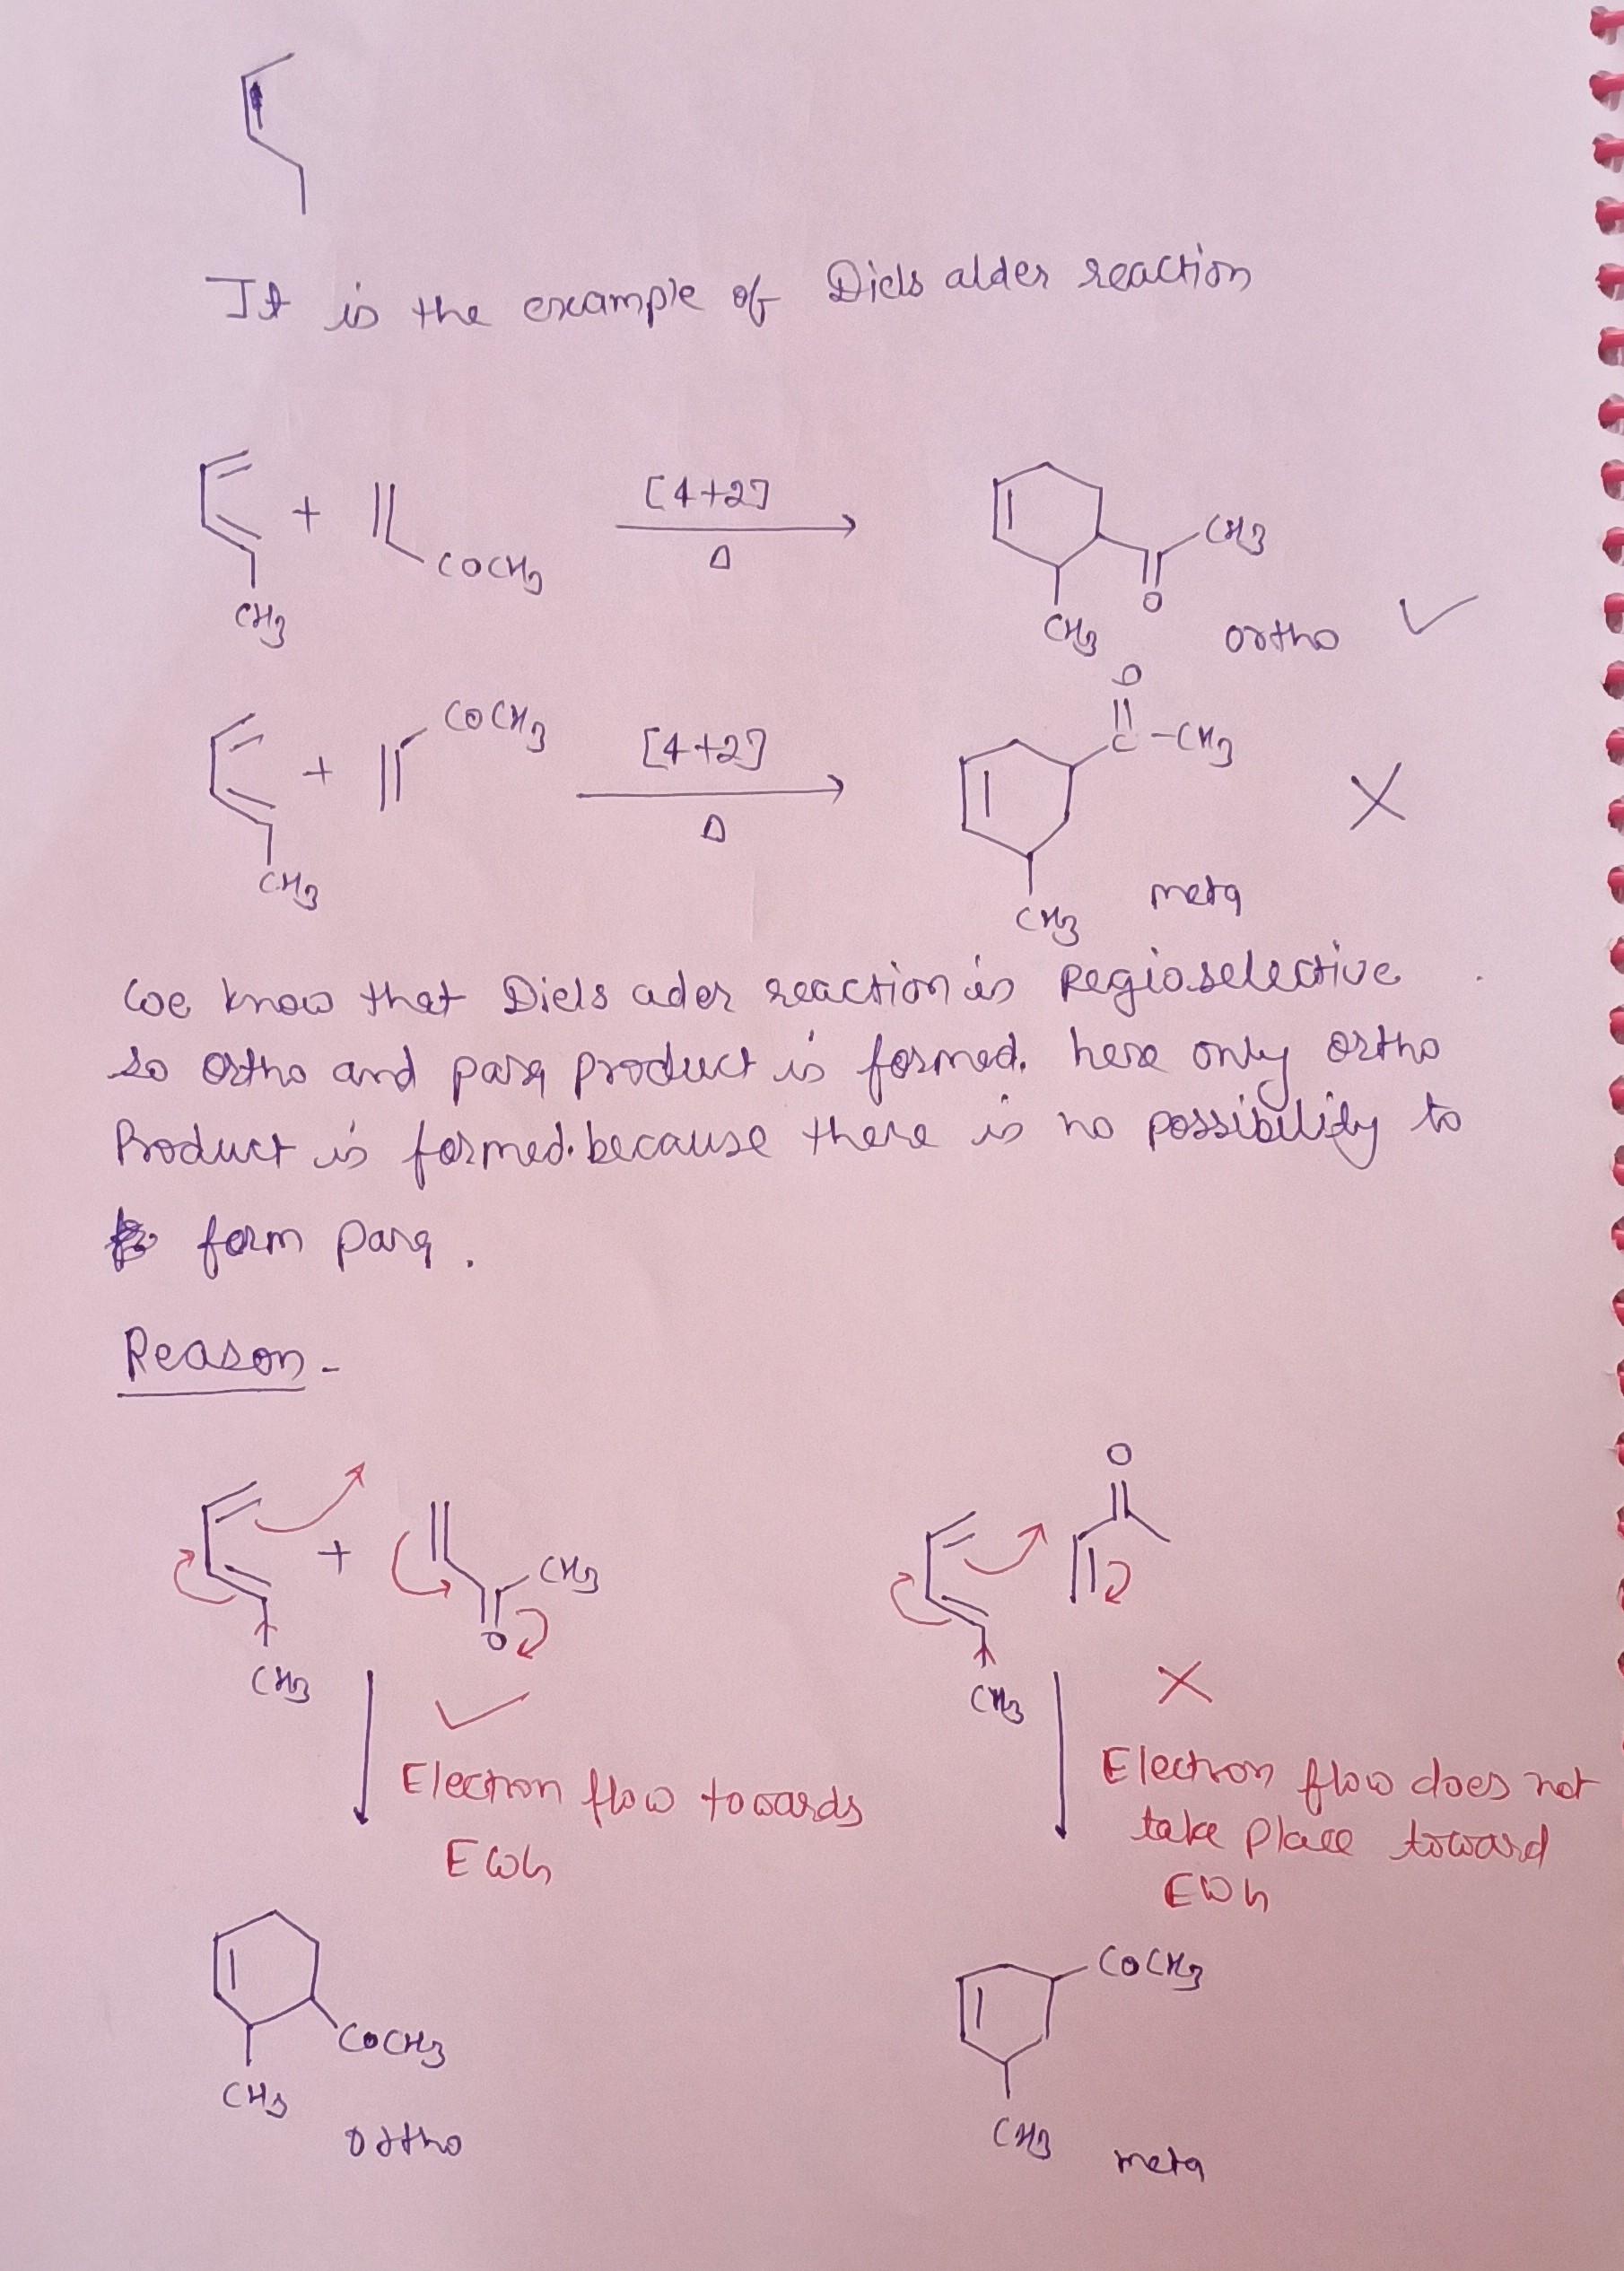 It is the example of Diels alder reaction
+ COCH3 [4+2] Δ CH3
CH3 O
CH3 ortho ✓
+ COCH3 [4+2] Δ O
C-CH3 X
CH3 CH3 meta
We know that Diels ader reaction is Regioselective
so ortho and para product is formed. here only ortho
Product is formed. because there is no possibility to
form para.
Reason -
+ CH3 O
O
CH3 ✓ CH3 X
Electron flow towards
EWG
Electron flow does not
take place toward
EWG
COCH3
CH3
ortho
COCH3
CH3
meta